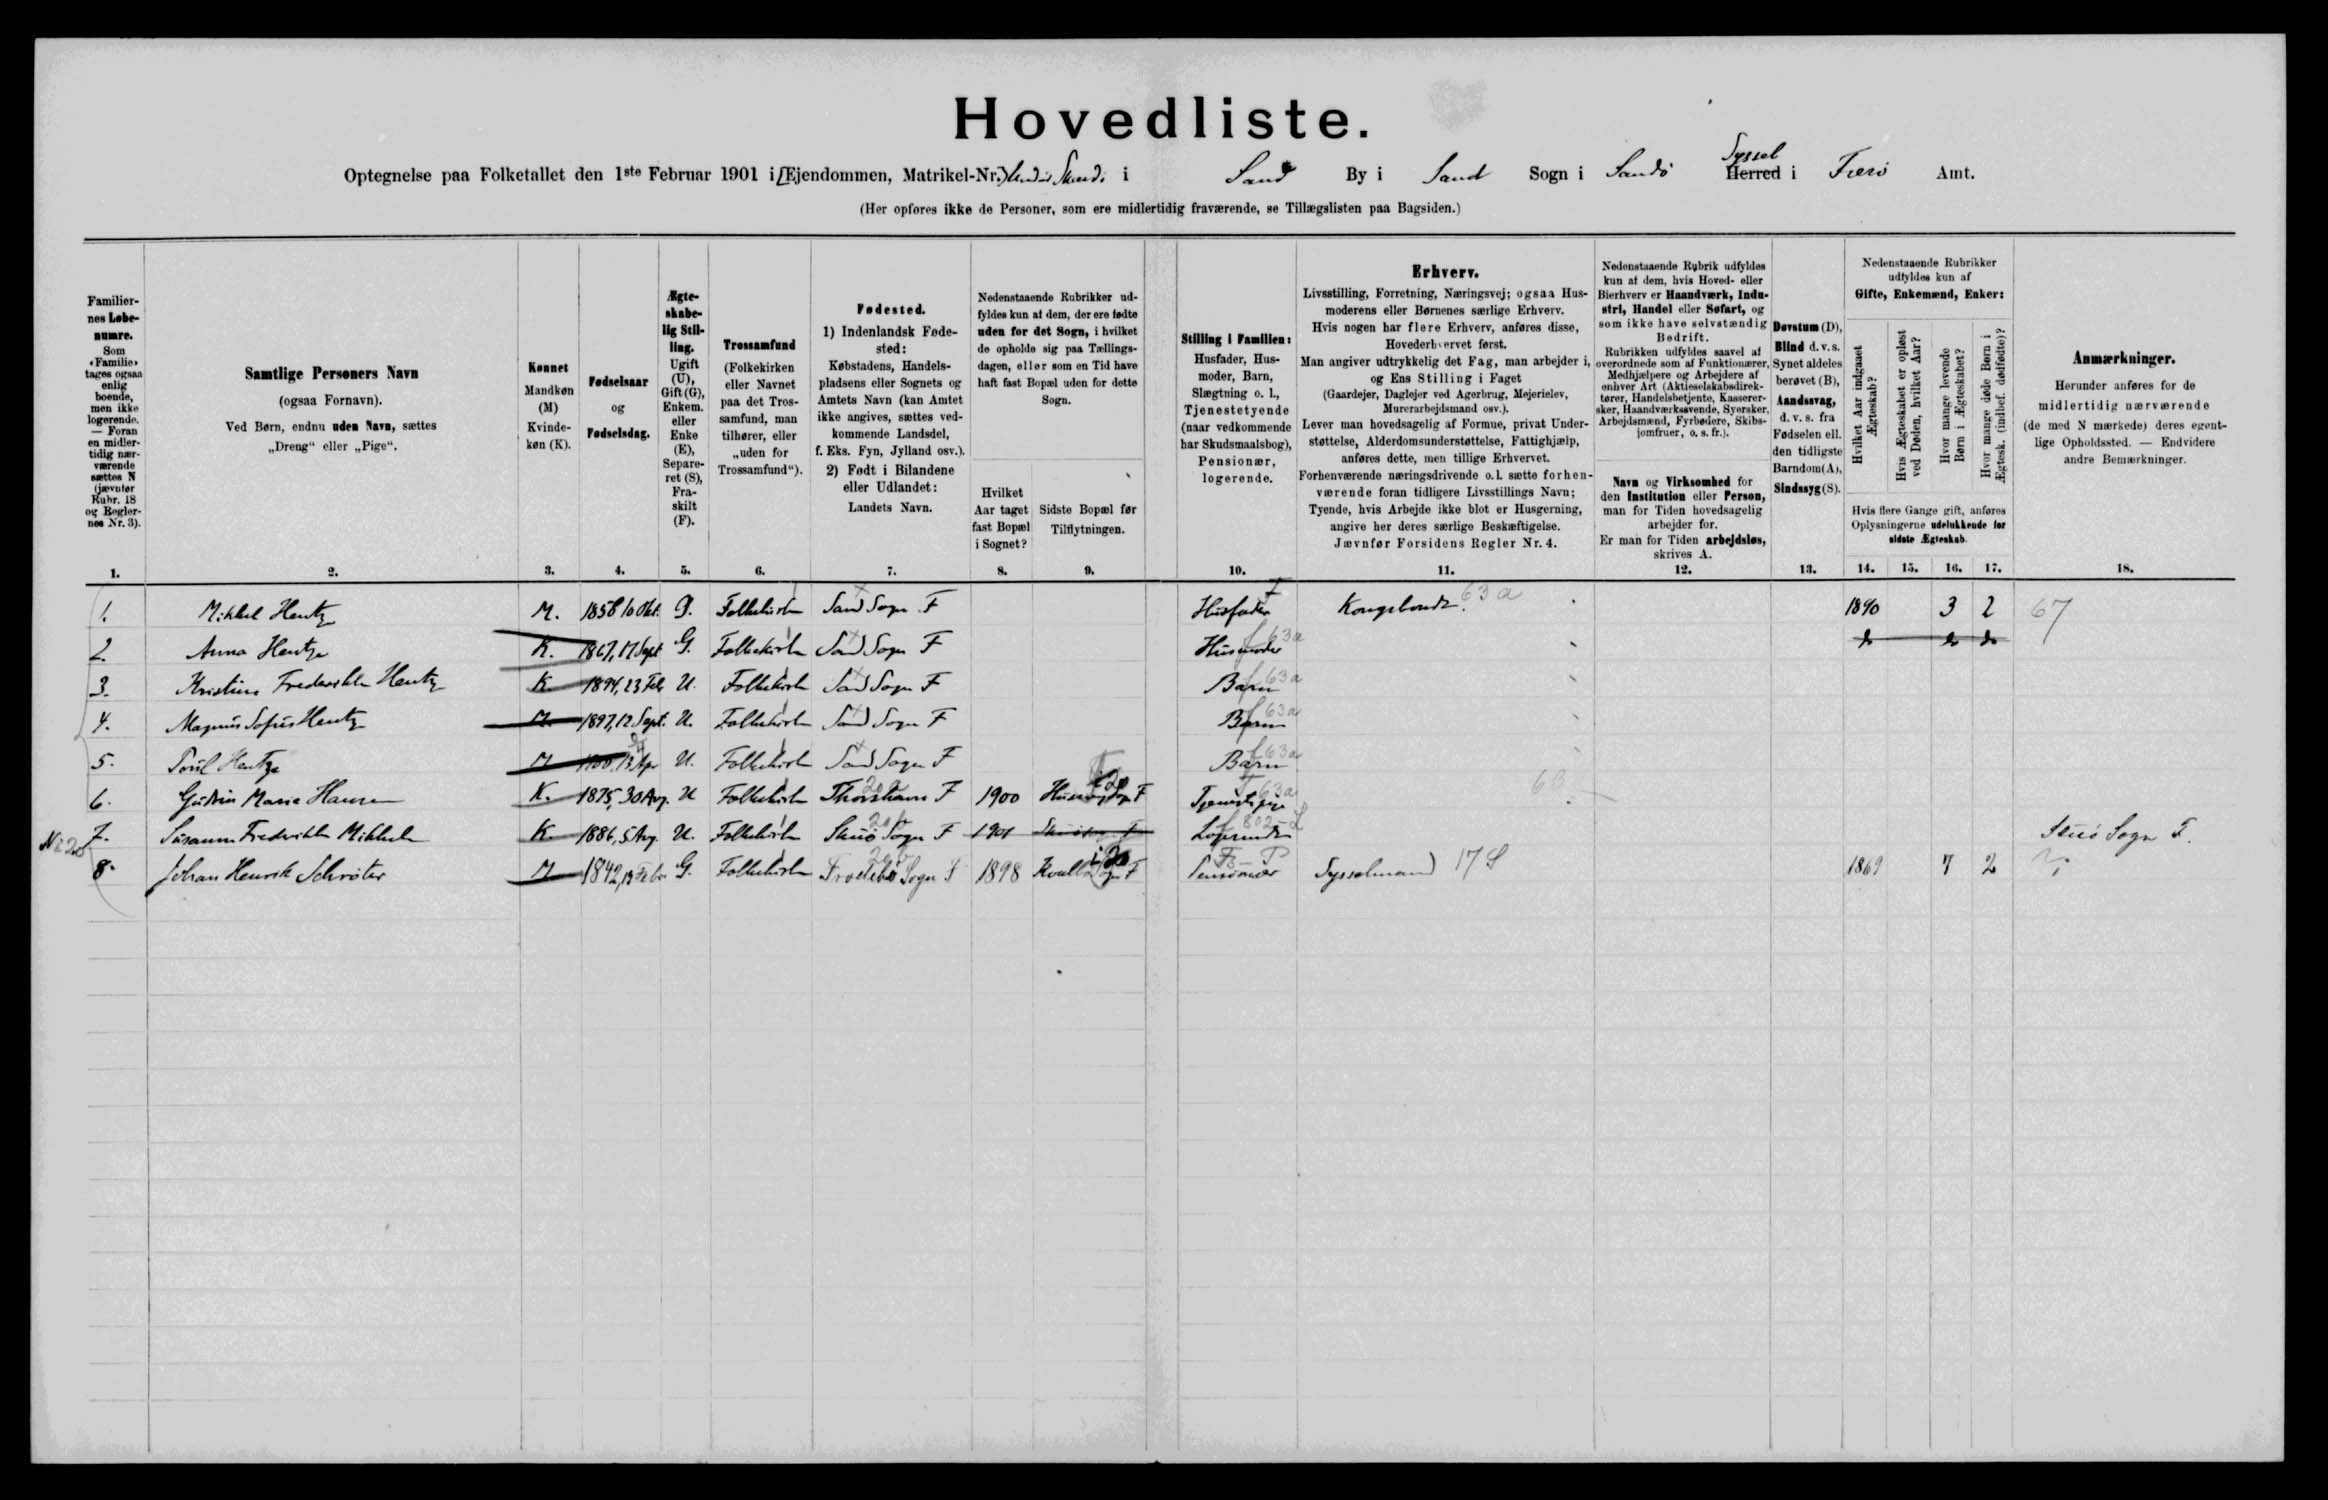 Hovedliste.
Optegnelse paa Folketallet den 1ste Februar 1901 i [Ejendommen, Matrikel-Nr.] i Sand By i Sand Sogn i Sandö Syssel Herred i Færö Amt.
(Her opføres ikke de Personer, som ere midlertidig fraværende, se Tillægslisten paa Bagsiden.)
Familiernes Løbenumre.
Som «Familie» tages ogsaa enlig boende, men ikke logerende. — Foran en midlertidig nærværende sættes N (jævnfør Rubr. 18 og Reglernes Nr. 3).
Samtlige Personers Navn
(ogsaa Fornavn).
Ved Børn, endnu uden Navn, sættes
„Dreng“ eller „Pige“.
Kønnet
Mandkøn (M)
Kvindekøn (K).
Fødselsaar
og
Fødselsdag.
Ægteskabelig Stilling.
Ugift (U), Gift (G), Enkem. eller Enke (E), Separeret (S), Fraskilt (F).
Trossamfund
(Folkekirken eller Navnet paa det Trossamfund, man tilhører, eller „uden for Trossamfund“).
Fødested.
1) Indenlandsk Fødested:
Købstadens, Handelspladsens eller Sognets og Amtets Navn (kan Amtet ikke angives, sættes vedkommende Landsdel, f. Eks. Fyn, Jylland osv.).
2) Født i Bilandene eller Udlandet:
Landets Navn.
Nedenstaaende Rubrikker udfyldes kun af dem, der ere fødte uden for det Sogn, i hvilket de opholde sig paa Tællingsdagen, eller som en Tid have haft fast Bopæl uden for dette Sogn.
Hvilket Aar taget fast Bopæl i Sognet?
Sidste Bopæl før Tilflytningen.
Stilling i Familien:
Husfader, Husmoder, Barn, Slægtning o. l., Tjenestetyende (naar vedkommende har Skudsmaalsbog), Pensionær, logerende.
Erhverv.
Livsstilling, Forretning, Næringsvej; ogsaa Husmoderens eller Børnenes særlige Erhverv.
Hvis nogen har flere Erhverv, anføres disse, Hovederhvervet først.
Man angiver udtrykkelig det Fag, man arbejder i, og Ens Stilling i Faget
(Gaardejer, Daglejer ved Agerbrug, Mejerielev, Murerarbejdsmand osv.).
Lever man hovedsagelig af Formue, privat Understøttelse, Alderdomsunderstøttelse, Fattighjælp, anføres dette, men tillige Erhvervet.
Forhenværende næringsdrivende o. l. sætte forhenværende foran tidligere Livsstillings Navn;
Tyende, hvis Arbejde ikke blot er Husgerning, angive her deres særlige Beskæftigelse.
Jævnfør Forsidens Regler Nr. 4.
Nedenstaaende Rubrik udfyldes kun af dem, hvis Hoved- eller Bierhverv er Haandværk, Industri, Handel eller Søfart, og som ikke have selvstændig Bedrift.
Rubrikken udfyldes saavel af overordnede som af Funktionærer, Medhjælpere og Arbejdere af enhver Art (Aktieselskabsdirektører, Handelsbetjente, Kasserersker, Haandværkssvende, Syersker, Arbejdsmænd, Fyrbødere, Skibsjomfruer, o. s. fr.).
Navn og Virksomhed for den Institution eller Person, man for Tiden hovedsagelig arbejder for.
Er man for Tiden arbejdsløs, skrives A.
Døvstum (D), Blind d. v. s. Synet aldeles berøvet (B), Aandssvag, d. v. s. fra Fødselen ell. den tidligste Barndom (A), Sindssyg (S).
Nedenstaaende Rubrikker udfyldes kun af
Gifte, Enkemænd, Enker:
Hvilket Aar indgaaet Ægteskab?
Hvis Ægteskabet er opløst ved Døden, hvilket Aar?
Hvor mange levende Børn i Ægteskabet?
Hvor mange døde Børn i Ægtesk. (indbef. dødfødte)?
Hvis flere Gange gift, anføres Oplysningerne udelukkende for sidste Ægteskab.
Anmærkninger.
Herunder anføres for de midlertidig nærværende (de med N mærkede) deres egentlige Opholdssted. — Endvidere andre Bemærkninger.
1. 2. 3. 4. 5. 6. 7. 8. 9. 10. 11. 12. 13. 14. 15. 16. 17. 18.
1. Mikkel Hentze M. 1858 10 Okt. G. Folkekirken Sand Sogn F Husfader Kongsbonde 63a 1890 3 2 67
2. Anna Hentze K. 1867, 17 Sept G. Folkekirken Sand Sogn F Husmoder 63a do do do
3. Kristine Frederikke Hentze K. 1894, 23 Feb U. Folkekirken Sand Sogn F Barn 63a
4. Magnus Sofus Hentze M. 1897, 12 Sept. U. Folkekirken Sand Sogn F Barn 63a
5. Poul Hentze M 1900, 13 Apr U. Folkekirken Sand Sogn F Barn 63a
6. Gudrun Marie Hansen K. 1875, 30 Aug. U Folkekirken Thorshavn F 1900 Husavig Sogn F Tjenestepige 63a
7. Susanne Frederikke Mikkelsen K 1886, 5 Aug. U. Folkekirken Skuø Sogn F 1901 Logerende Skuö Sogn F.
8. Johan Henrik Schröter M 1842, 13 Febr G. Folkekirken Sogn F 1898 Kvalbø Sogn F Pensionær Sysselmand 17 1869 7 2